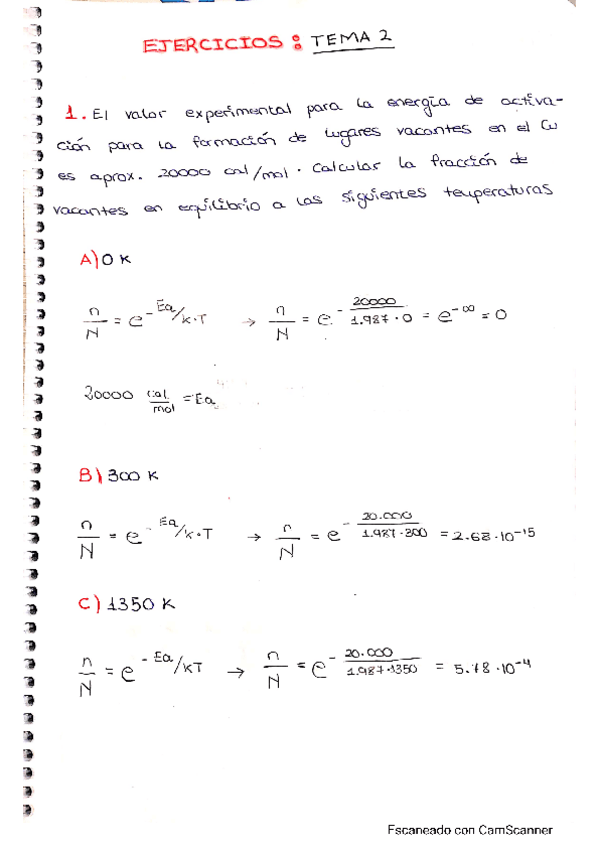 EJERCICIOS: TEMA 2
1. El valor experimental para la energía de activa-
ción para la formación de lugares vacantes en el Cu
es aprox. 20000 cal/mol. Calcular la fracción de
vacantes en equilibrio a las siguientes temperaturas
A) 0 K
n/N = e^(-Ea/K·T) → n/N = e^(-20000/(1.987·0)) = e^(-∞) = 0
20000 cal/mol = Ea
B) 300 K
n/N = e^(-Ea/K·T) → n/N = e^(-20.000/(1.987·300)) = 2.68·10^-15
C) 1350 K
n/N = e^(-Ea/KT) → n/N = e^(-20.000/(1.987·1350)) = 5.78·10^-4
Escaneado con CamScanner